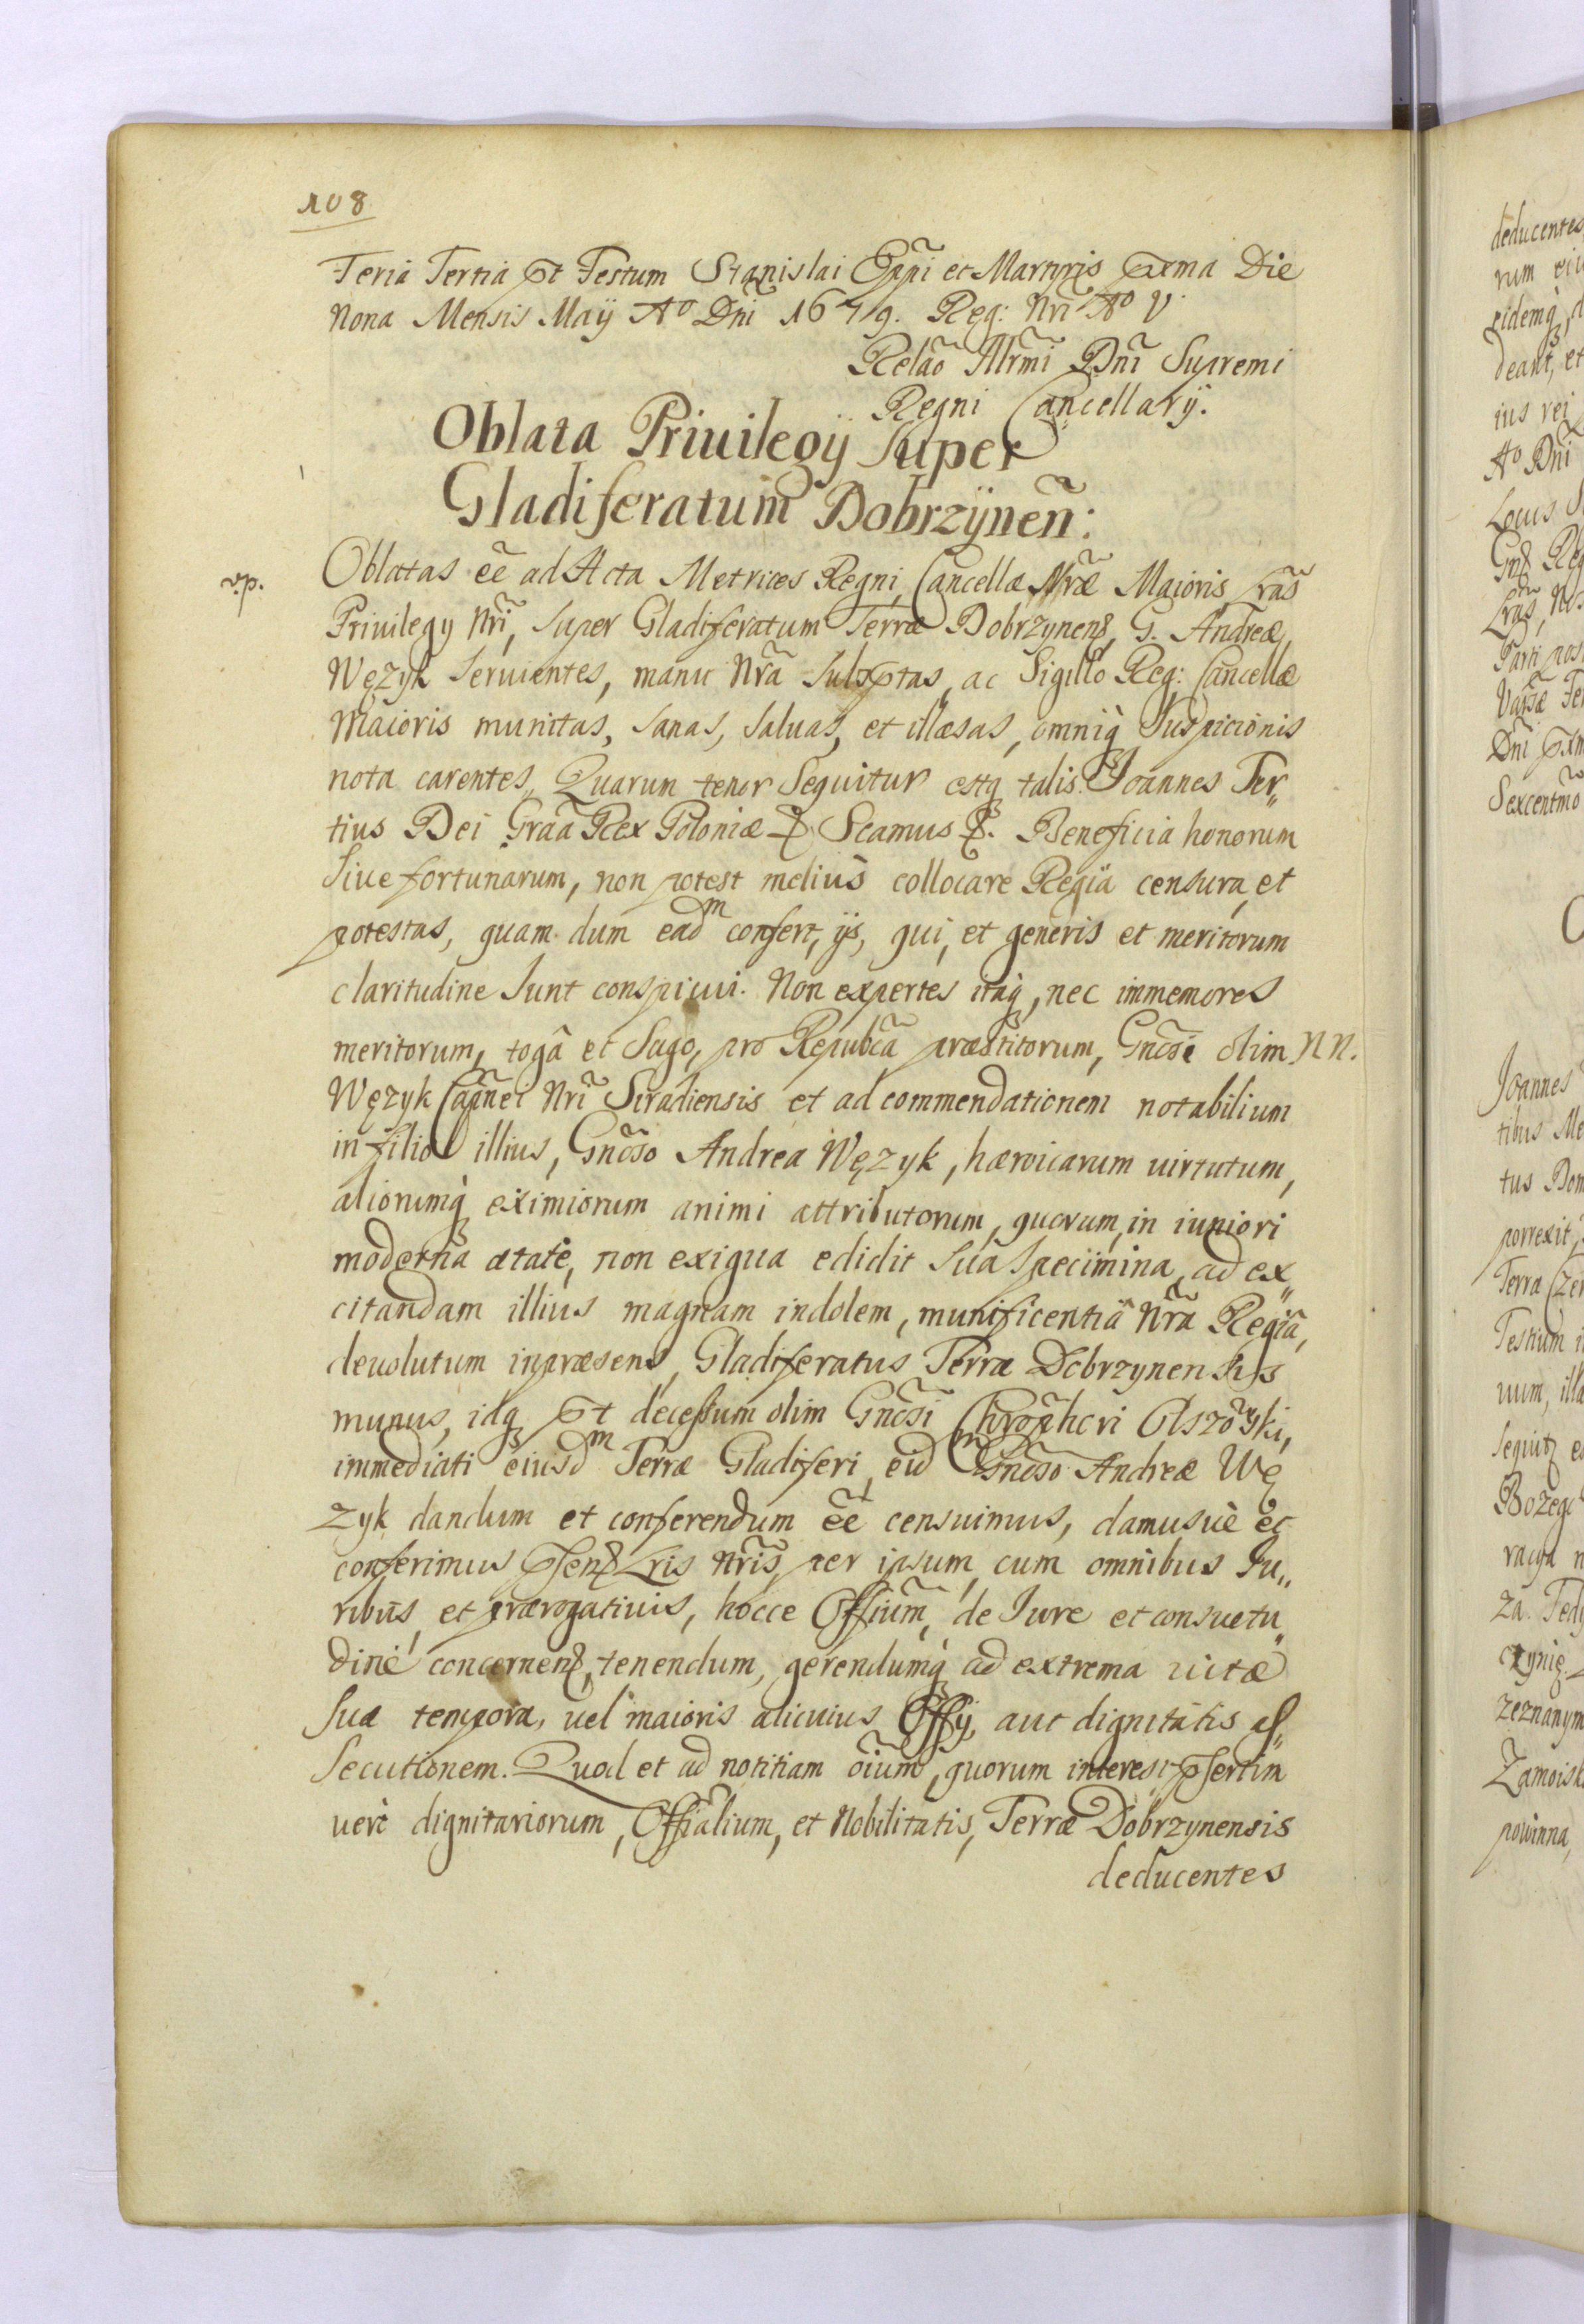 108
Feria Tertia pt Festum Stanislai Eppi et Martyris pxma Die
Nona Mensis Maÿ Aº Dni 1679. Reg: Nri Aº V
Relao Illrmi Dni Supremi
Regni Cancellarÿ.
Oblata Priuilegÿ Super
Gladiferatum Dobrzÿnen:
v.p.
Oblatas eē ad Acta Metrices Regni, Cancellæ Nræ Maioris Lras
Priuilegy Nri, Super Gladiferatum Terræ Dobrzynens, G. Andreæ
Wężyk Seruientes, manu Nra Subsptas, ac Sigillo Reg: Cancellæ
Maioris munitas, Sanas, Saluas, et illæsas, omniq Suspicionis
nota carentes, Quarum tenor Sequitur estq talis. Joannes Ter„
tius Dei Graa Rex Poloniæ & Scamus &. Beneficia honorum
Siue fortunarum, non potest meliùs collocare Regia censura, et
potestas, quam dum eadm confert, ijs, qui, et generis et meritorum
claritudine Sunt conspicui. Non expertes itaq, nec immemores
meritorum, togâ et Sago, pro Repubca præstitorum, Gncosi olim NN.
Wężyk Capnei Nri Siradiensis et ad commendationem notabilium
in filio illius, Gncoso Andrea Wężyk, hæroicarum uirtutum,
aliorumq eximiorum animi attributorum, quorum, in iuniori
moderna ætate, non exigua edidit Sua Specimina, ad ex„
citandam illius magnam indolem, munificentiâ Nra Regiâ,
deuolutum inpræsens, Gladiferatus Terræ Dobrzynensis
munus, idq pt decessum olim Gncosi Chrophori Olszowski,
immediati eiusdm Terræ Gladiferi, eidm Gncoso Andreæ Wę
zyk dandum et conferendum eē censuimus, damusuè et
conferimus psens Lris Nris, per ipsum, cum omnibus Iu„
ribus, et prærogatiuis, hocce Offium, de Iure et consuetu„
dine concernens, tenendum, gerendumq ad extrema uitæ
Suæ tempora, uel maioris alicuius Offÿ, aut dignitatis as„
Secutionem. Quod et ad notitiam oium, quorum interest psertim
uerò dignitariorum, Offialium, et Nobilitatis, Terræ Dobrzynensis
deducentes